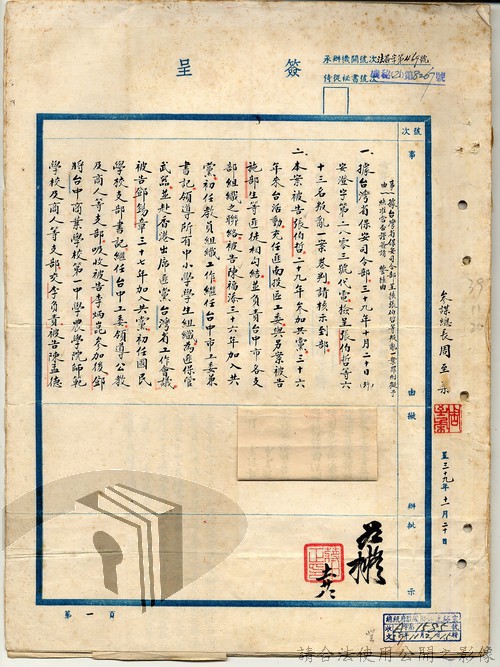 簽呈
承辦機關號次
侍從祕書號次
機秘(乙)第82-67號
號次
事由擬辦批示
參謀總長周至柔
呈三十九年十二月二十日
一、據台灣省保安司令部三十九年十月二十日
安澄字第二八〇三號代電檢呈張伯哲等六
十三名叛亂一案卷判請核示到部
二、本案被告張伯哲二十九年參加共黨三十六
年來台活動充任匪南投區工委與另案被告
施部生等匪徒相勾結並負責台中市各支
部組織之聯絡被告陳福添三十六年加入共
黨初任教員組織工作繼任台中市工委兼
書記領導所有中小學學生組織為匪保管
武器並赴香港出席匪黨台灣省工作會議
被告鄧錫章三十七年加入共黨初任國民
學校支部書記繼任台中工委領導公教
及商人等支部吸收被告李炳崑參加後鄧
將台中商業學校第二中學農學院師範
學校及商人等支部交李負責被告陳孟德
如擬
第一頁
請合法使用公開之影像